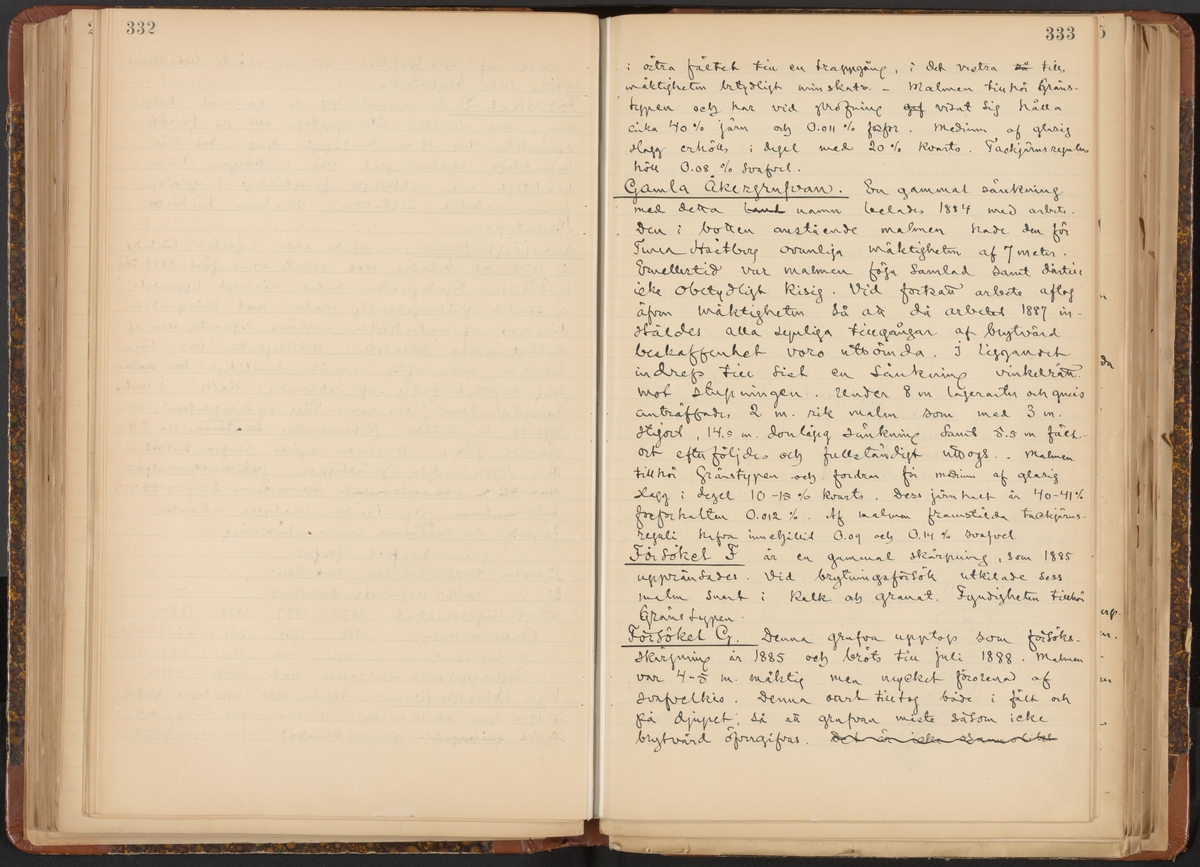 332
333
i östra fältet till en trappgång, i det vestra så till
mäktigheten betydligt minskats. – Malmen tillhör Gräns-
typen och har vid profning gif visat sig hålla
cirka 40 % järn och 0.011 % fosfor. Medium af glasig
slagg erhölls i degel med 20 % kvarts. Tackjärnsregulus
höll 0.08 % svafvel.
Gamla Åkergrufvan. En gammal sänkning
med detta namn belades 1884 med arbete.
Den i botten anstående malmen hade den för
Tuna Hästberg ovanliga mäktigheten af 7 meter.
Emellertid var malmen föga samlad samt därtill
icke obetydligt kisig. Vid fortsatt arbete aftog
äfven mäktigheten så att då arbetet 1887 in-
stäldes alla synliga tillgångar af brytvärd
beskaffenhet voro uttömda. I liggandet
indrefs till sist en sänkning vinkelrätt
mot stupningen. Under 8 m lägerarter och gneis
anträffades 2 m. rik malm som med 3 m.
stigort, 14.5 m. donlägig sänkning samt 5.5 m fält-
ort efterföljdes och fullständigt uttogs. – Malmen
tillhör Gränstypen och fordrar för medium af glasig
slagg i degel 10–15 % kvarts. Dess järnhalt är 40–41%
fosforhalten 0.012 %. Af malmen framstälda tackjärns-
reguli hafva innehållit 0.09 och 0.14 % svafvel
Försöket F är en gammal skärpning, som 1885
uppränsades. Vid brytningsförsök utkilade dess
malm snart i kalk och granat. Fyndigheten tillhör
Gränstypen.
Försöket G. Denna grufva upptogs som försöks-
skärpning år 1885 och bröts till juli 1888. Malmen
var 4–5 m. mäktig men mycket förorenad af
svafvelkis. Denna snart tilltog både i fält och
på djupet, så att grufvan måste såsom icke
brytvärd öfvergifvas. Det är icke